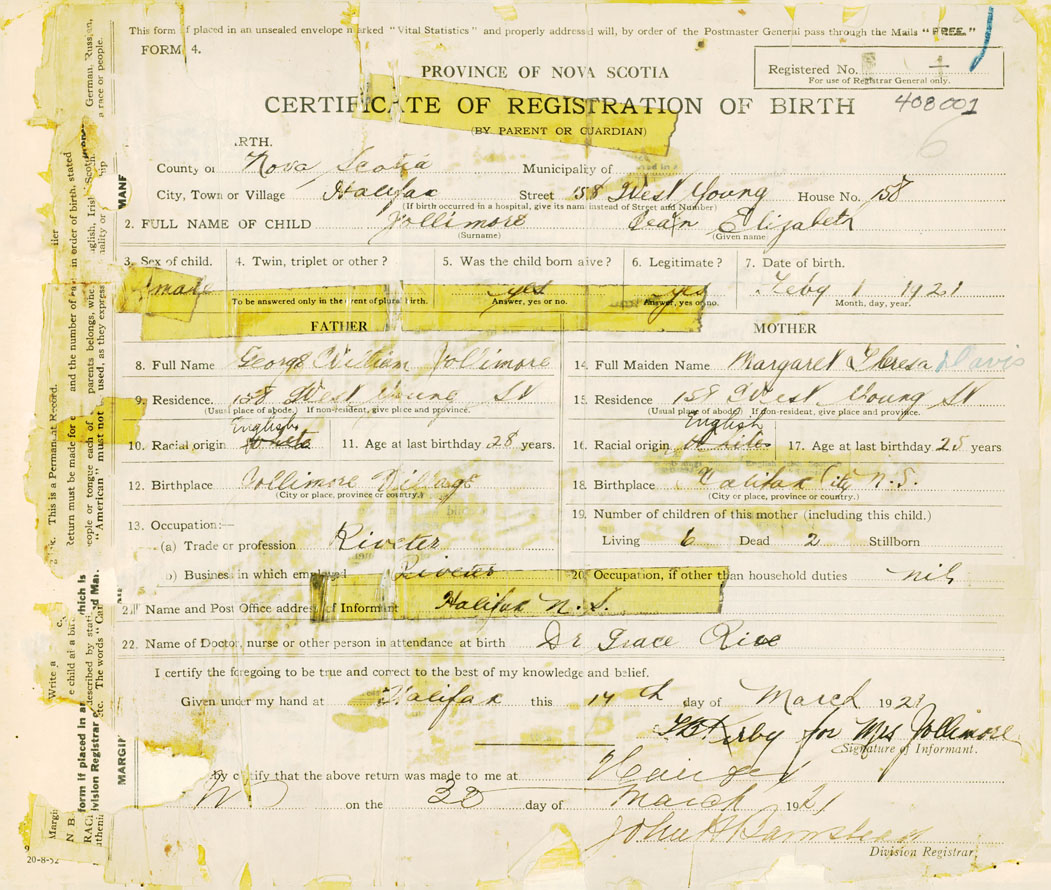 This form if placed in an unsealed envelope marked "Vital Statistics" and properly addressed will, by order of the Postmaster General pass through the Mails "FREE."
FORM 4.
PROVINCE OF NOVA SCOTIA
Registered No.
For use of Registrar General only.
CERTIFICATE OF REGISTRATION OF BIRTH 408001
(BY PARENT OR GUARDIAN) 6
RTH.
County or Nova Scotia Municipality of
City, Town or Village Halifax Street 158 West Young House No. 158
(If birth occurred in a hospital, give its name instead of Street and Number)
2. FULL NAME OF CHILD Jollimore Jean Elizabeth
(Surname) (Given name)
3. Sex of child. 4. Twin, triplet or other? 5. Was the child born alive? 6. Legitimate? 7. Date of birth.
male yes yes Feby 1 1921
To be answered only in the event of plural birth. Answer, yes or no. Answer, yes or no. Month, day, year.
FATHER MOTHER
8. Full Name George William Jollimore 14. Full Maiden Name Margaret Theresa Davis
9. Residence. 158 West Young St 15. Residence 158 West Young St
(Usual place of abode.) If non-resident, give place and province. (Usual place of abode) If non-resident, give place and province.
English English
10. Racial origin white 11. Age at last birthday 28 years. 16. Racial origin white 17. Age at last birthday 25 years
12. Birthplace Jollimore Village 18. Birthplace Halifax City N.S.
(City or place, province or country.) (City or place, province or country.)
13. Occupation:— 19. Number of children of this mother (including this child.)
(a) Trade or profession Riveter Living 6 Dead 2 Stillborn
b) Business in which employed Riveter 20. Occupation, if other than household duties nil
21 Name and Post Office address of Informant Halifax N. S.
22. Name of Doctor, nurse or other person in attendance at birth Dr Grace Rice
I certify the foregoing to be true and correct to the best of my knowledge and belief.
Given under my hand at Halifax this 14th day of March 1921
Kirby for Mrs Jollimore
Signature of Informant.
by certify that the above return was made to me at
on the day of March 1921
John
Division Registrar.
20-8-52
This is a Permanent Record.
"American" must not
MARGIN